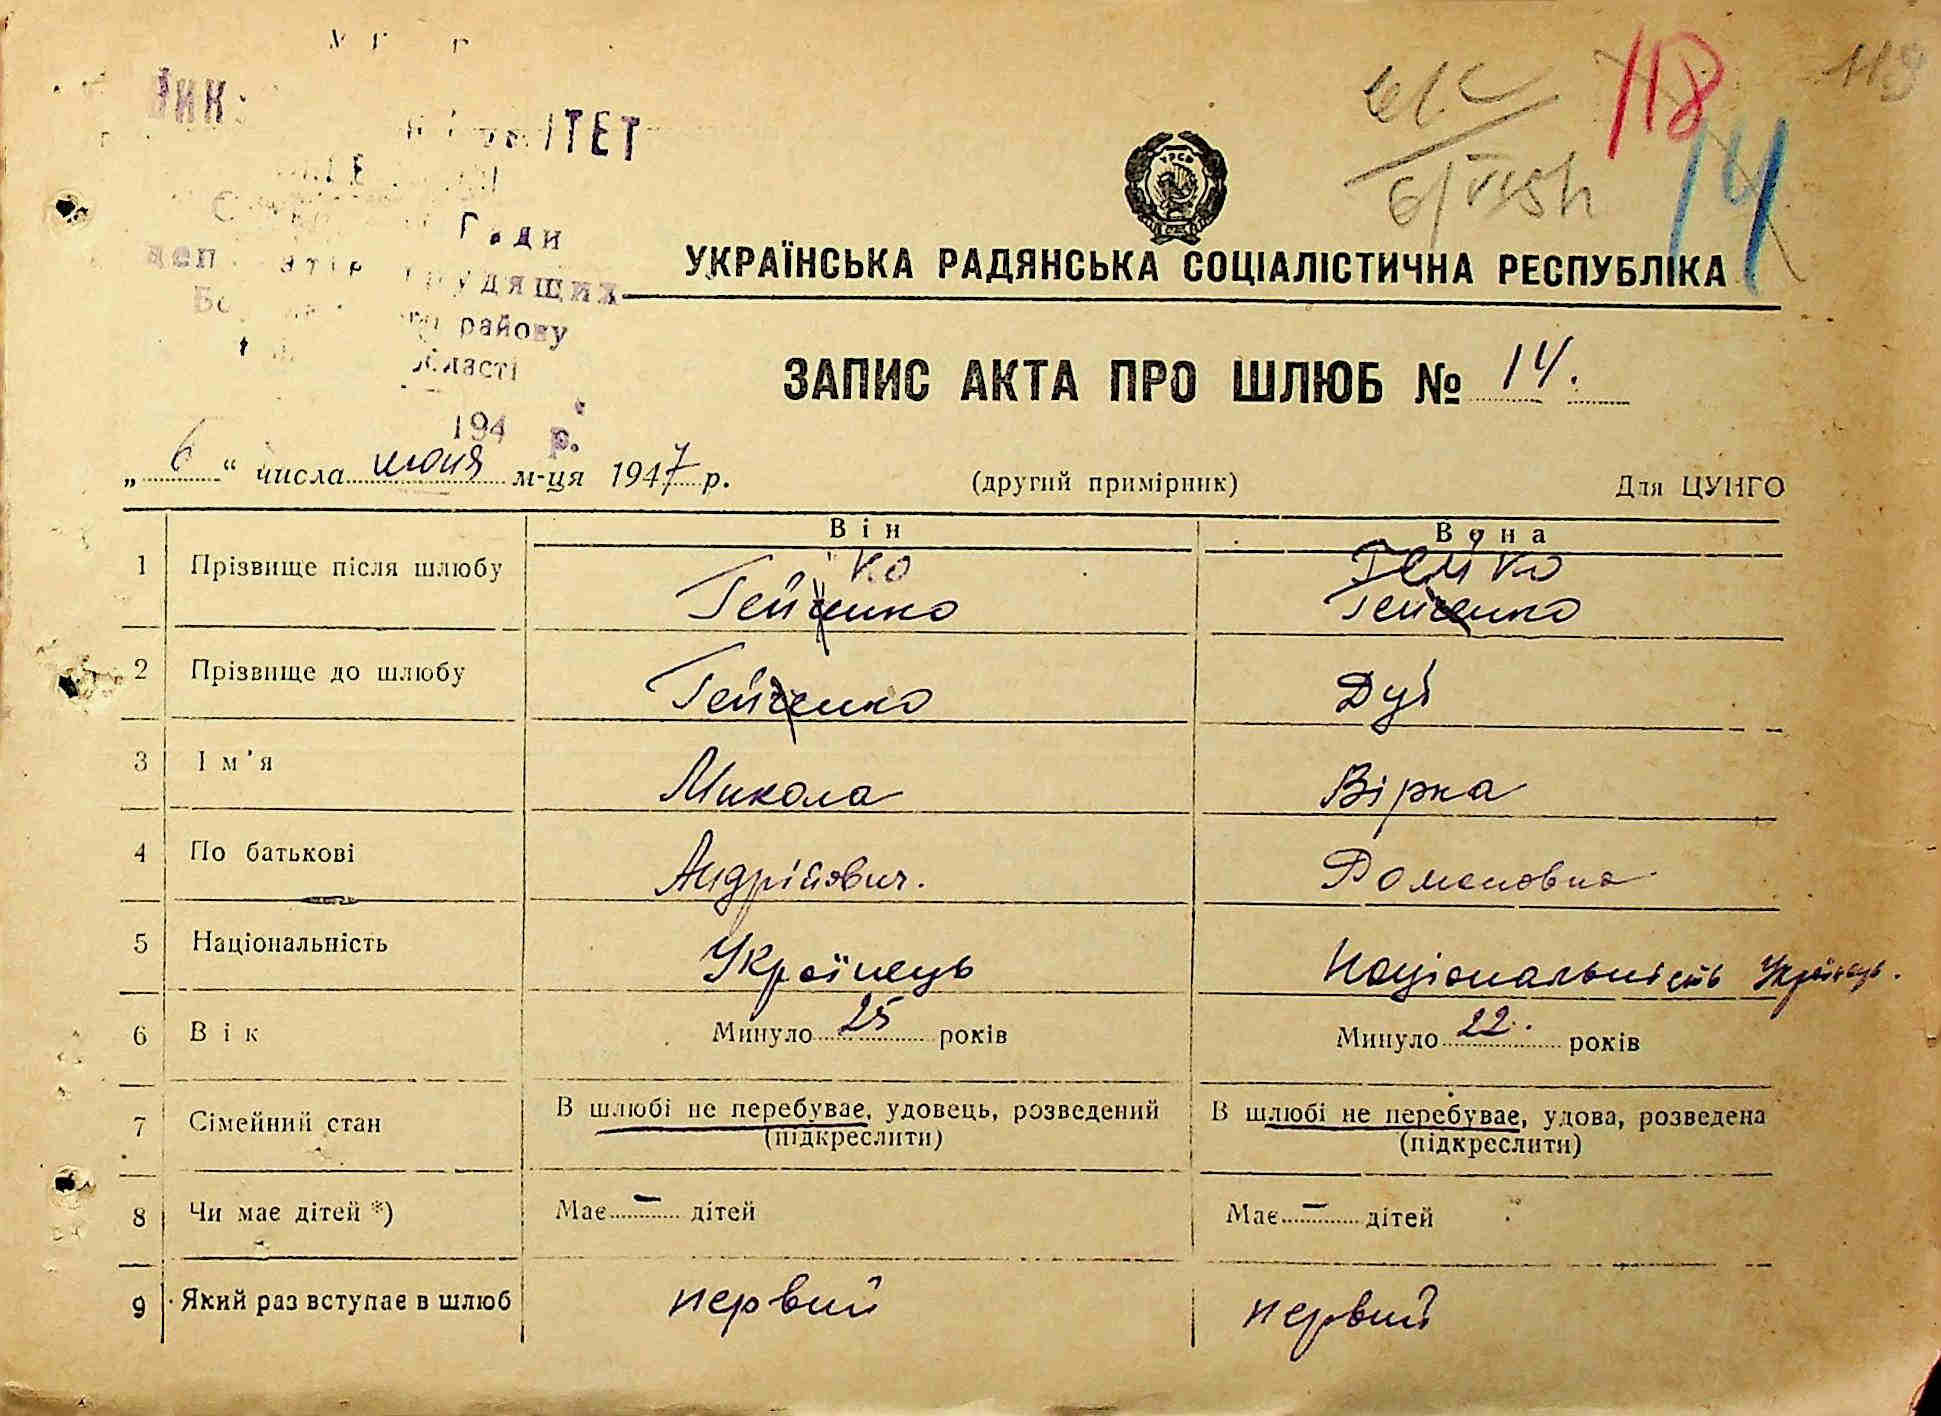 ІТЕТ
Ради
депутатів трудящих
району
області
194 р.
118
119
14
УРСР
УКРАЇНСЬКА РАДЯНСЬКА СОЦІАЛІСТИЧНА РЕСПУБЛІКА
ЗАПИС АКТА ПРО ШЛЮБ № 14.
„ 6 “ числа июня м-ця 1947 р.
(другий примірник)
Для ЦУНГО
Він
Вона
1 Прізвище після шлюбу
ко
Гейченко
Гейко
Гейченко
2 Прізвище до шлюбу Гейченко Дуб
3 Ім'я Микола Вірка
4 По батькові Андрійович. Романовна
5 Національність Українець Національність Українець.
6 Вік Минуло 25 років Минуло 22. років
7 Сімейний стан В шлюбі не перебуває, удовець, розведений В шлюбі не перебуває, удова, розведена
(підкреслити) (підкреслити)
8 Чи має дітей *) Має – дітей Має – дітей
9 Який раз вступає в шлюб первий первий